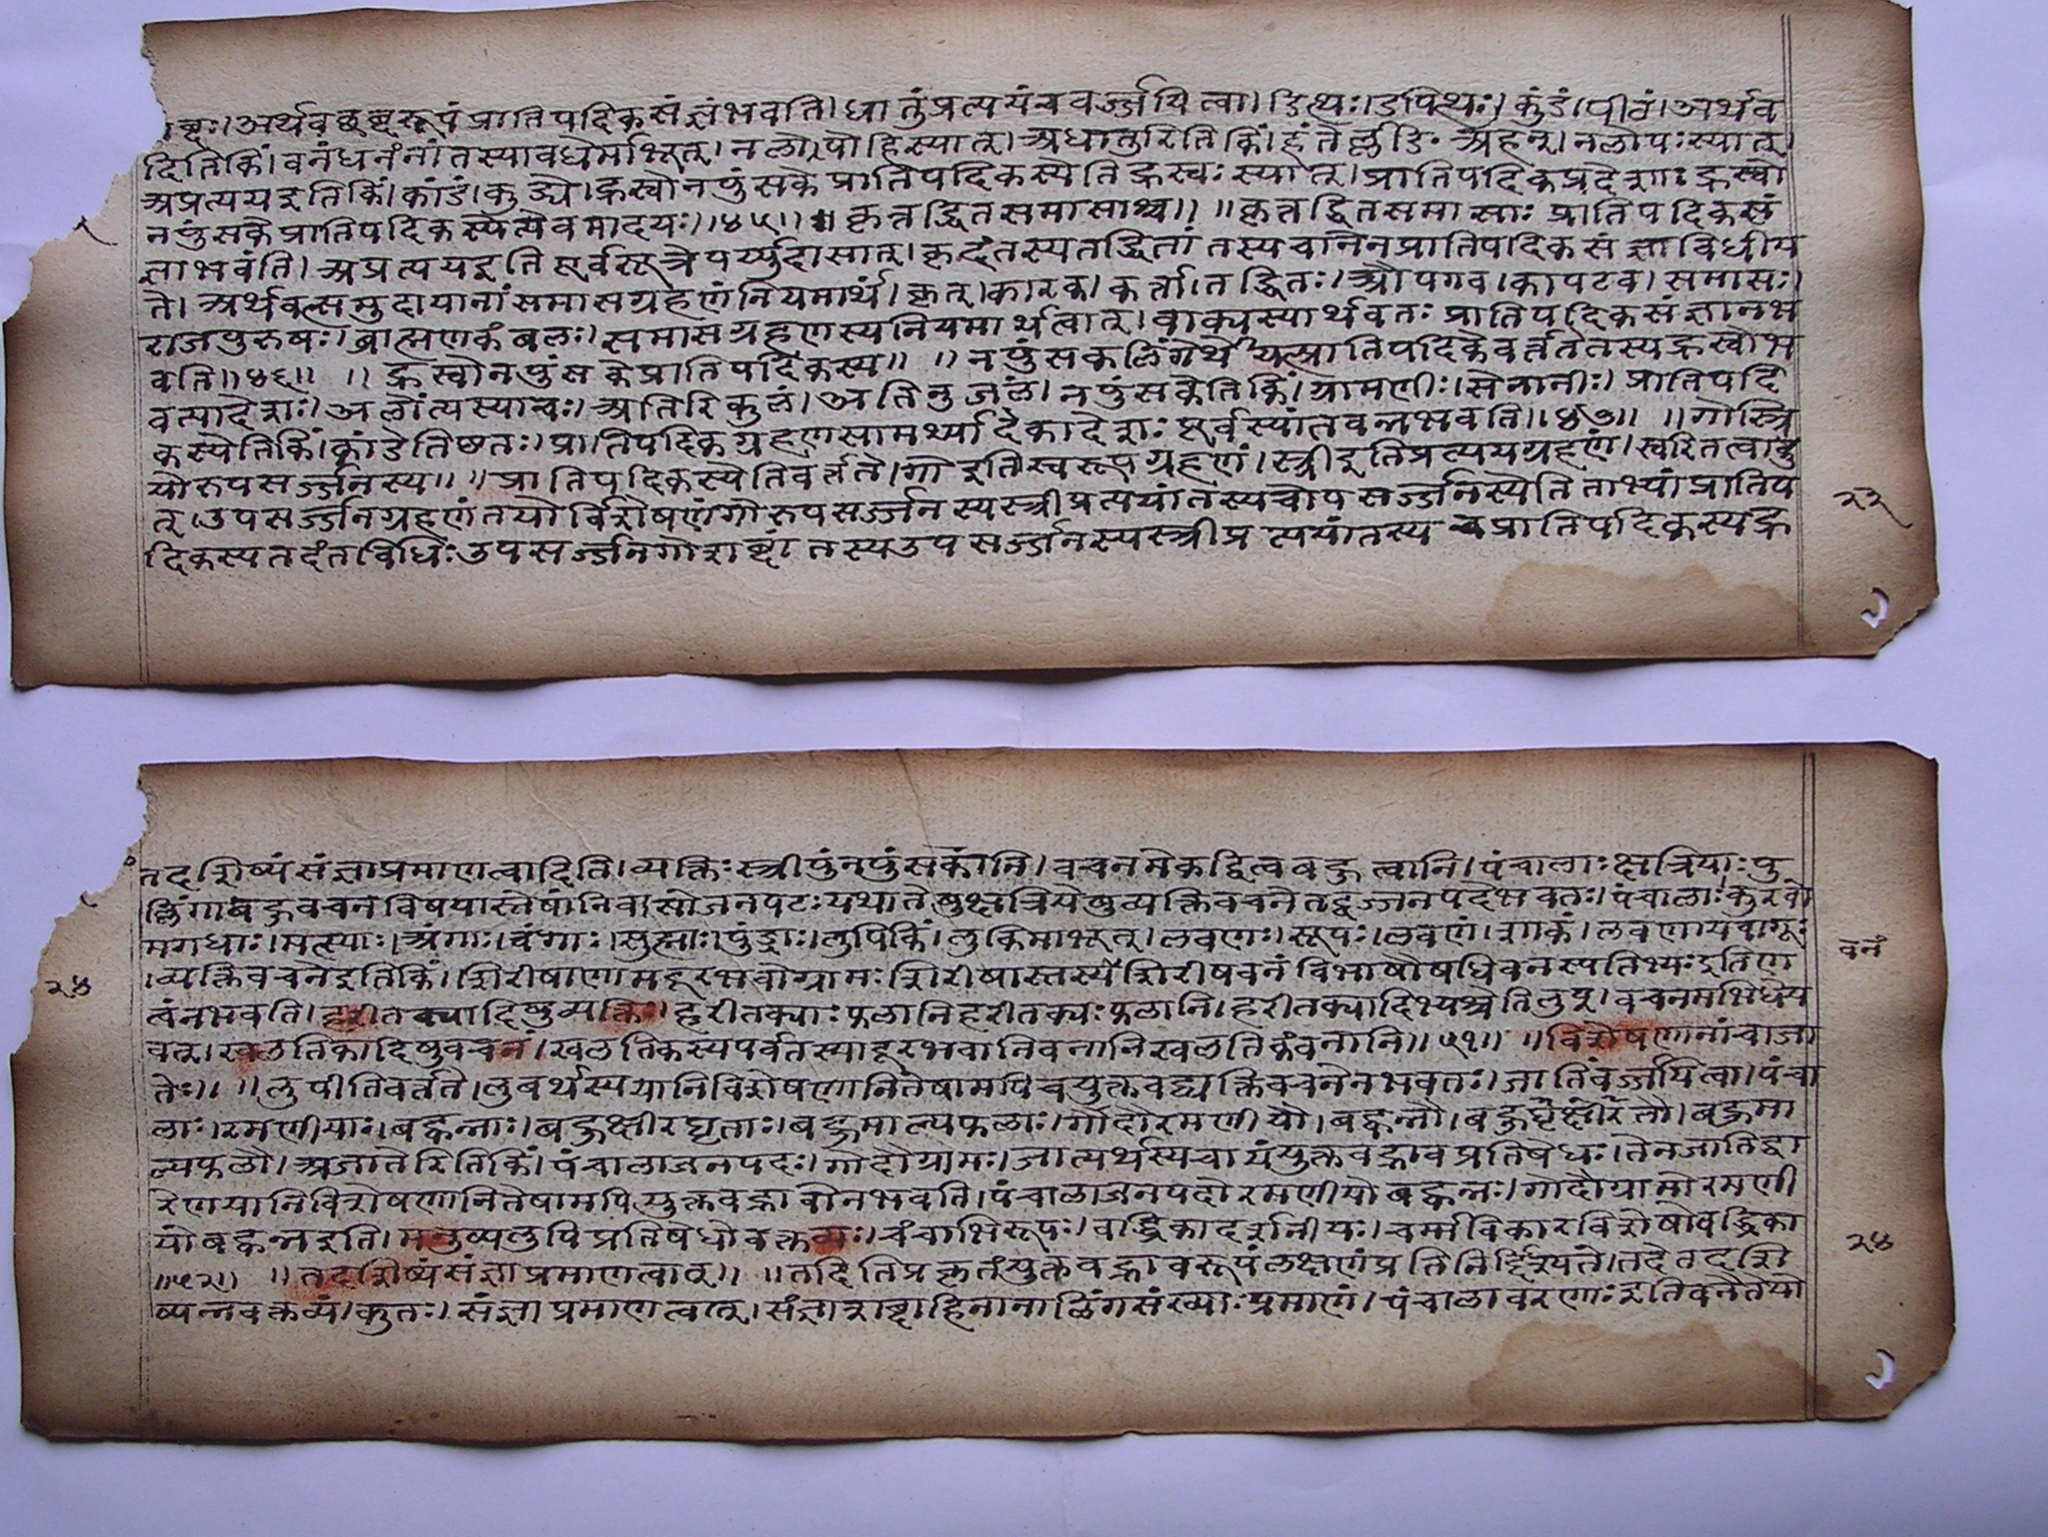 ब्दः। अर्थवछब्दरूपं प्रातिपदिकसंज्ञंभवति। धातुंप्रत्ययंचवर्ज्जयित्वा। डित्थः। डपित्थः। कुंडं। पीठं। अर्थव
दितिकिं। वनंधनंनांतस्यावधेर्माभूत्। नलोपोहिस्यात्। अधातुरितिकिं। हंतेर्ल्लङि॰ अहन्। नलोपःस्यात्।
अप्रत्ययइतिकिं। कांडे। कुड्ये। ह्रस्वोनपुंसके प्रातिपदिकस्येतिह्रस्वः स्यात्। प्रातिपदिकप्रदेशाः ह्रस्वो
नपुंसकेप्रातिपदिकस्येत्येवमादयः॥४५॥ ॥कृत्तद्धितसमासाश्च॥ ॥कृत्तद्धितसमासाः प्रातिपदिकसं
ज्ञाभवंति। अप्रत्ययइतिपूर्वसूत्रेपर्य्युदासात्। कृदंतस्यतद्धितांतस्यचानेनप्रातिपदिकसंज्ञाविधीय
ते। अर्थवत्समुदायानांसमासग्रहणंनियमार्थं। कृत्। कारक। कर्त्ता। तद्धितः। औपगव। कापटव। समासः।
राजपुरुषः। ब्राह्मणकंबलः। समासग्रहणस्यनियमार्थत्वात्। वाक्यस्यार्थवतः प्रातिपदिकसंज्ञानभ
वति॥४६॥ ॥ह्रस्वोनपुंसकेप्रातिपदिकस्य॥ ॥नपुंसकलिंगेर्थेयत्प्रातिपदिकंवर्त्ततेतस्यह्रस्वोभ
वत्यादेशः। अलोंत्यस्याचः। अतिरिकुलं। अतिनुजलं। नपुंसकेतिकिं। ग्रामणीः। सेनानीः। प्रातिपदि
कस्येतिकिं। कांडेतिष्ठतः। प्रातिपदिकग्रहणसामर्थ्यादेकादेशः पूर्वस्यांतवन्नभवति॥४७॥ ॥गोस्त्रि
योरुपसर्ज्जनस्य॥ ॥प्रातिपदिकस्येतिवर्त्तते। गोइतिस्वरूपग्रहणं। स्त्रीइतिप्रत्ययग्रहणं। स्वरितत्वादु
त्। उपसर्ज्जनग्रहणंतयोर्विशेषणंगोरुपसर्ज्जनस्यस्त्रीप्रत्ययांतस्यचोपसर्ज्जनस्येतिताभ्यांप्रातिप
दिकस्यतदंतविधिः उपसर्ज्जनगोशब्दांतस्यउपसर्ज्जनस्यस्त्रीप्रत्ययांतस्यचप्रातिपदिकस्यह्र
२३
तदशिष्यंसंज्ञाप्रमाणत्वादिति। व्यक्तिः स्त्रीपुंनपुंसकानि। वचनमेकद्वित्वबहुत्वानि। पंचालाः क्षत्रियाः पु
ल्लिंगाबहुवचनविषयास्तेषांनिवासोजनपदः यथातेषुक्षत्रियेषुव्यक्तिवचनेतद्वज्जनपदेभवतः। पंचालाः कुरवो
मगधाः। मत्स्याः। अंगाः। वंगाः। सुह्माः। पुंड्राः। लुपिकिं। लुकिमाभूत्। लवणः। सूपः। लवणं। शाकं। लवणायवागूः
। व्यक्तिवचनेइतिकिं। शिरीषाणामदूरभवोग्रामः शिरीषास्तस्य शिरीषवनं विभाषौषधिवनस्पतिभ्यः इतिण
वनं
२४
त्वंनभवति। हरीतक्यादिषुव्यक्तिः। हरीतक्याः फलानिहरीतक्यः फलानि। हरीतक्यादिभ्यश्चेतिलुप्। वचनमभिधेय
वत्। खलतिकादिषुवचनं। खलतिकस्यपर्वतस्यादूरभवानिवनानिखलतिकंवनानि॥५१॥ ॥विशेषणानांचाजा
तेः॥ ॥लुपीतिवर्त्तते। लुबर्थस्ययानिविशेषणानितेषामपिचयुक्तवद्व्यक्तिवचनेनभवतः। जातिंवर्ज्जयित्वा। पंचा
लाः। रमणीयाः। बह्वन्नाः। बहुक्षीरघृताः। बहुमाल्यफलाः। गोदौरमणीयौ। बह्वन्नौ। बहुक्षीरघृतौ। बहुमा
ल्यफलौ। अजातेरितिकिं। पंचालाजनपदः। गोदौग्रामः। जात्यर्थस्यचायंयुक्तवद्भावप्रतिषेधः। तेनजातिद्वा
रेणयानिविशेषणानितेषामपियुक्तवद्भावोनभवति। पंचालाजनपदोरमणीयोबह्वन्नः। गोदौग्रामोरमणी
योबह्वन्नइति। मनुष्यलुपिप्रतिषेधोवक्तव्यः। चंचाभिरूपः। वर्द्ध्रिकादर्शनीयः। चर्मविकारविशेषोवर्द्ध्रिका
॥५२॥ ॥तदशिष्यंसंज्ञाप्रमाणत्वात्॥ ॥तदितिप्रकृतंयुक्तवद्भावरूपंलक्षणंप्रतिनिर्द्दिश्यते। तदेतदशि
ष्यन्नवक्तव्यं। कुतः। संज्ञाप्रमाणत्वात्। संज्ञाशब्दाहिनानालिंगसंख्याः प्रमाणं। पंचालावरणाः इतिचनैतेया
२४